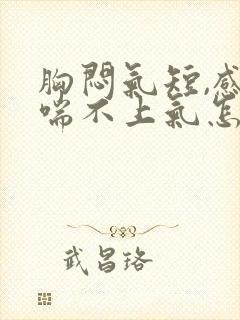 胸悶氣短,感
喘不上氣怎
武昌珞